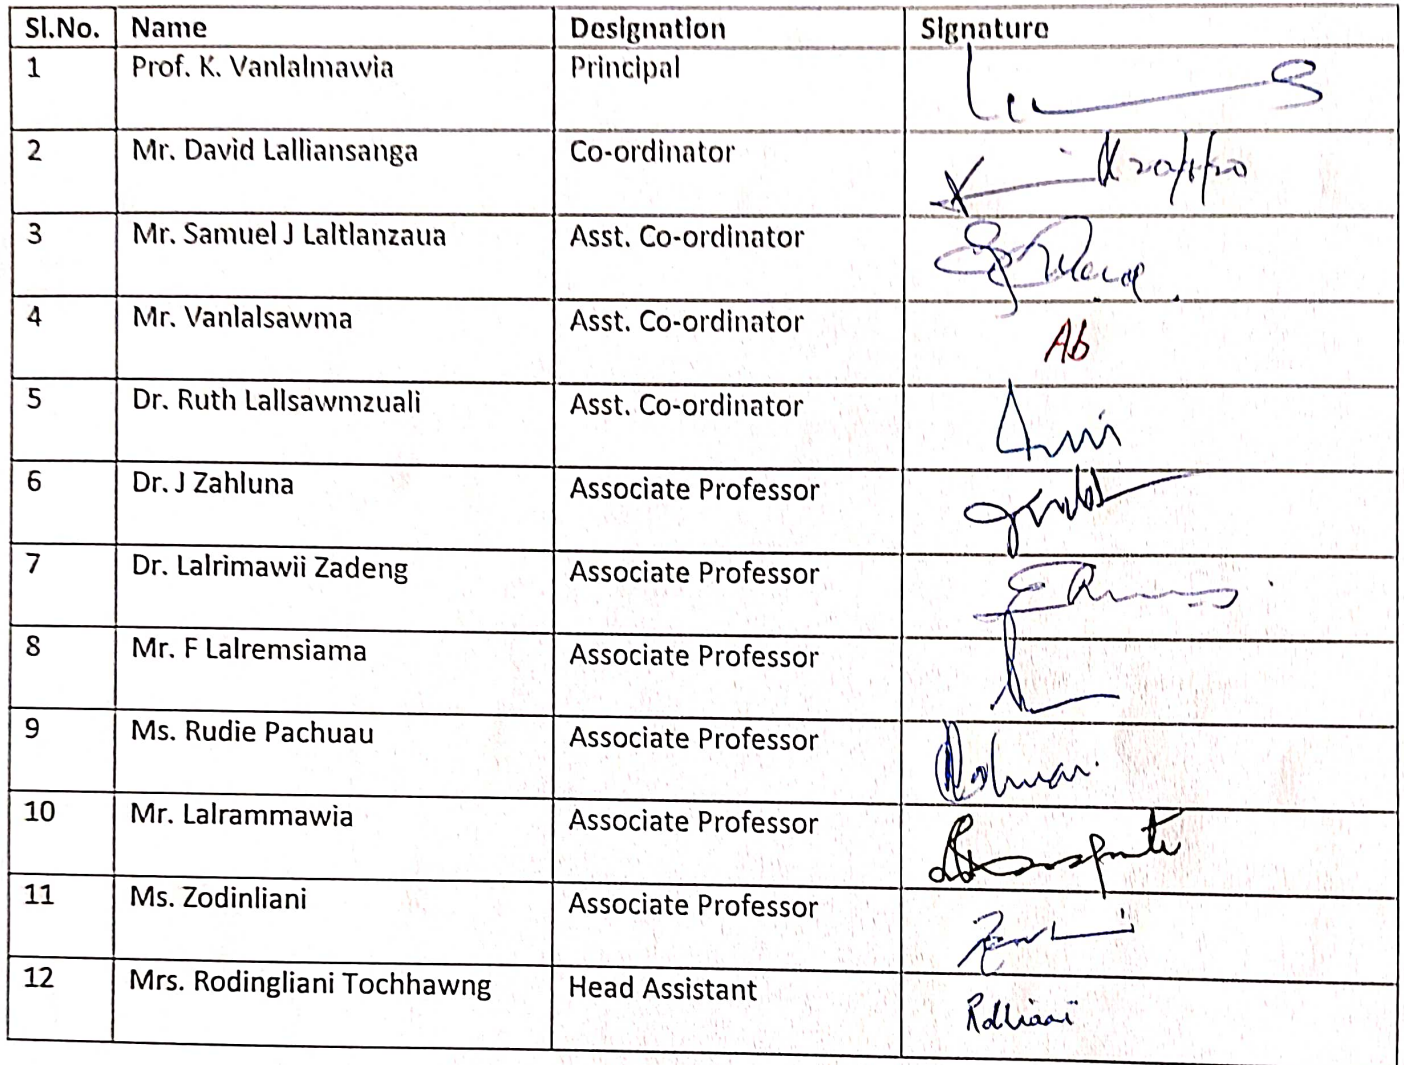 Sl.No. Name Designation Signature
1 Prof. K. Vanlalmawia Principal
2 Mr. David Lalliansanga Co-ordinator
3 Mr. Samuel J Laltlanzaua Asst. Co-ordinator
4 Mr. Vanlalsawma Asst. Co-ordinator Ab
5 Dr. Ruth Lallsawmzuali Asst. Co-ordinator
6 Dr. J Zahluna Associate Professor
7 Dr. Lalrimawii Zadeng Associate Professor
8 Mr. F Lalremsiama Associate Professor
9 Ms. Rudie Pachuau Associate Professor
10 Mr. Lalrammawia Associate Professor
11 Ms. Zodinliani Associate Professor
12 Mrs. Rodingliani Tochhawng Head Assistant